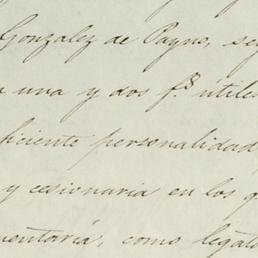 Gonzalez de Payno, se
a una y dos f.s útile
ficiente personalidad
y cesionaria en los q
mentaría, como legata